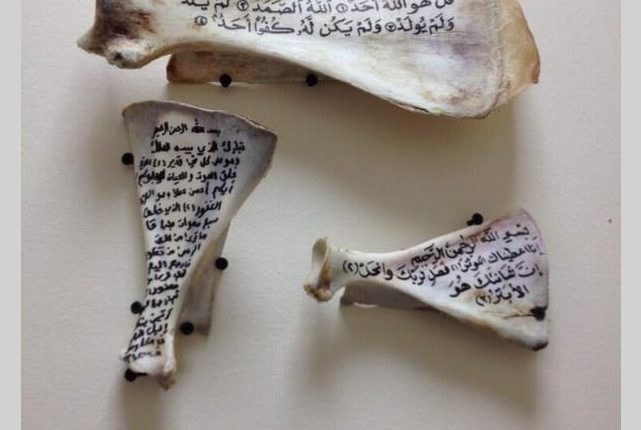 قل هو الله أحد ① الله الصمد ② لم يلد
ولم يولد ③ ولم يكن له كفوا أحد ④
بسم الله الرحمن الرحيم
تبارك الذي بيده الملك
وهو على كل شيء قدير (١) الذي
خلق الموت والحياة ليبلوكم
أيكم أحسن عملا وهو العزيز
الغفور (٢) الذي خلق
سبع سموات طباقا
ما ترى في خلق
الرحمن من تفاوت
بسم الله الرحمن الرحيم
إنا أعطيناك الكوثر (١) فصل لربك وانحر (٢)
إن شانئك هو
الأبتر (٣)